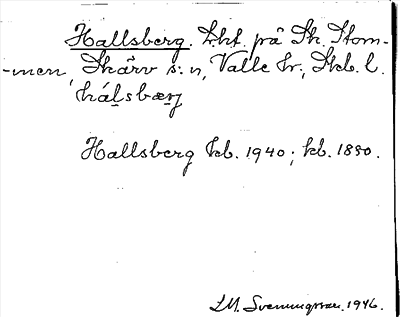 Hallsberg. Lht. på Sk. Stom-
-men, Skärv s:n, Valle hr, Skb. l.
hálsbærj
Hallsberg kb. 1940; kb. 1880.
I.M. Svenungsson. 1946.